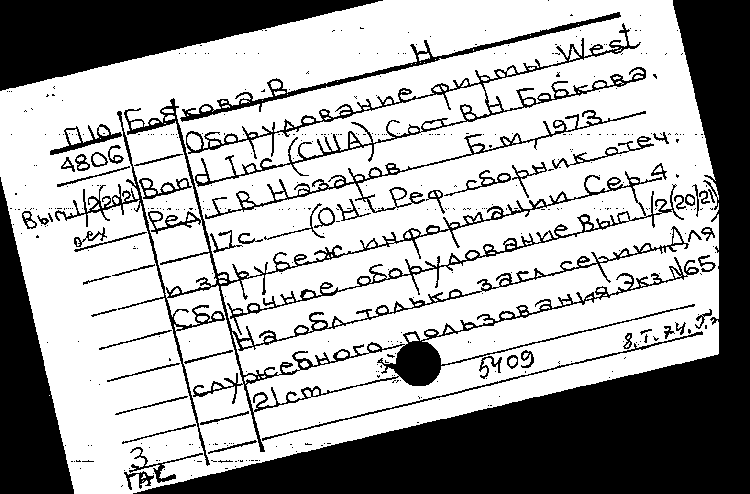 П10 Бобкова, В Н
4806 Оборудование фирмы West
Вып.1/2(20/21) Bond Inc (США). Сост В.Н Бобкова.
Ред. Г.В Назаров. Б.м, 1973.
17с. (ОНТ Реф. сборник отеч.
и зарубеж. информации Сер 4.
Сборочное оборудование. Вып. 1/2(20/21))
На обл только загл серии. „Для
служебного пользования. Экз N65.
21cm.
5409 8.I.74.
3
ГАК